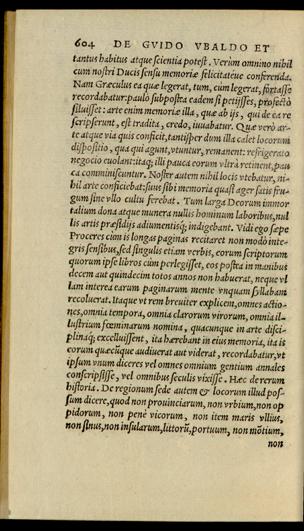 604 DE GVIDO VBALDO ET
tantus habitus atque scientia potest. Verùm omnino nihil
cum nostri Ducis sensu memoriæ felicitateue conferenda.
Nam Græculus ea quæ legerat, tum, cùm legerat, fortasse
recordabatur: paulo subpost ea eadem si petijsses, profectò
siluisset: arte enim memoriæ illa, quæ ab ijs, qui de ea re
scripserunt, est tradita, credo, iuuabatur. Quæ verò ar-
te atque via quis conficit, tantisper dum illa calet locorum
dispositio, qua qui agunt, vtuntur, remanent: refrigerato
negocio euolant: itaq; illi pauca eorum vltrà retinent, pau
ca comminiscuntur. Noster autem nihil locis vtebatur, ni-
hil arte conficiebat: suus sibi memoria quasi ager satis fru-
gum sine vllo cultu ferebat. Tum larga Deorum immor
talium dona atque munera nullis hominum laboribus, nul
lis artis præsidijs adiumentisq; indigebant. Vidi ego sæpe
Proceres cùm is longas paginas recitaret non modò inte-
gris sensibus, sed singulis etiam verbis, eorum scriptorum
quorum ipse libros cùm perlegisset, eos postea in manibus
decem aut quindecim totos annos non habuerat, neque vl
lam interea earum paginarum mente vnquam syllabam
recoluerat. Itaque vt rem breuiter explicem, omnes actio-
nes, omnia tempora, omnia clarorum virorum, omnia il-
lustrium fœminarum nomina, quacunque in arte disci-
plinaq; excelluissent, ita hærebant in eius memoria, ita is
eorum quæcũque audiuerat aut viderat, recordabatur, vt
ipsum vnum diceres vel omnes omnium gentium annales
conscripsisse, vel omnibus seculis vixisse. Hæc de rerum
historia. De regionum sede autem & locorum illud pos-
sum dicere, quod non prouinciarum, non vrbium, non op
pidorum, non penè vicorum, non item maris vllius,
non sinus, non insularum, littorũ, portuum, non mõtium,
non